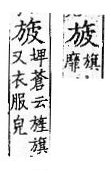 旇
旗
靡
旇
埤蒼云旌旗
又衣服皃